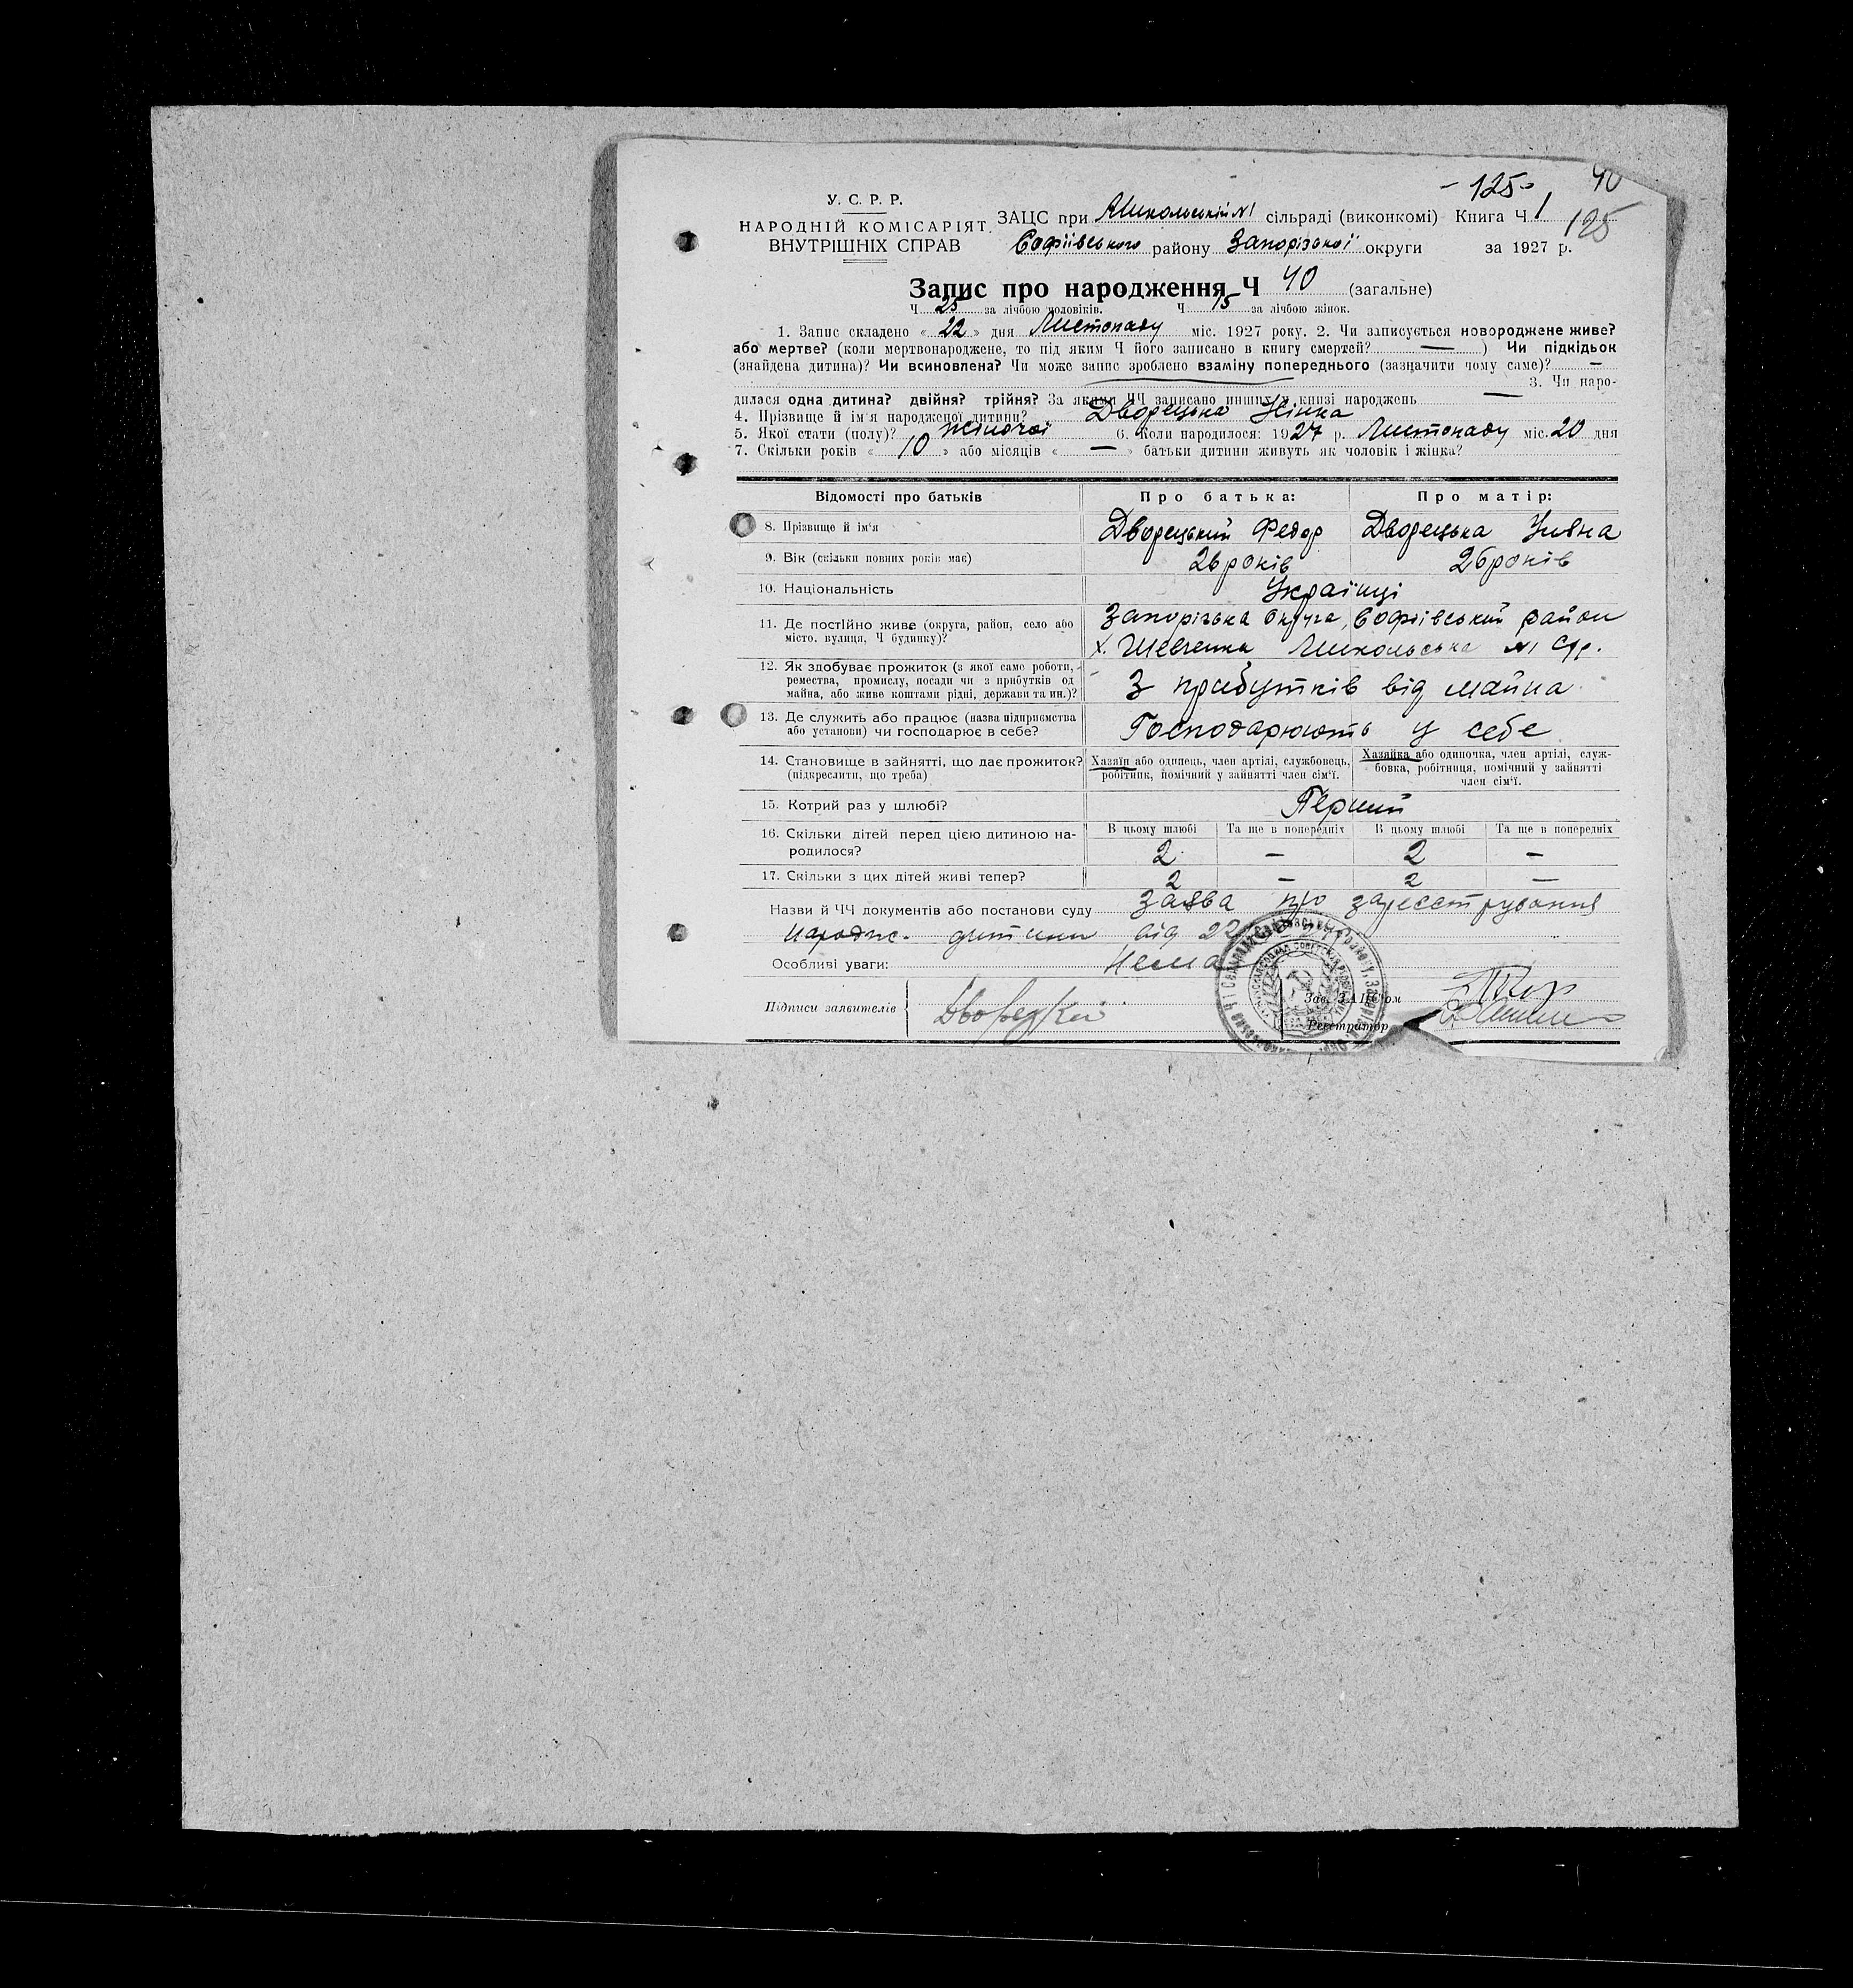 - 125 - 40
У. С. Р. Р.
НАРОДНІЙ КОМІСАРІЯТ
ВНУТРІШНІХ СПРАВ
ЗАЦС при Микольській №1 сільраді (виконкомі) Книга Ч 1
125
Софіївського району Запорізької округи за 1927 р.
Запис про народження Ч 40 (загальне)
Ч 25 за лічбою чоловіків. Ч 15 за лічбою жінок.
1. Запис складено « 22 » дня Листопаду міс. 1927 року. 2. Чи записується новороджене живе?
або мертве? (коли мертвонароджене, то під яким Ч його записано в книгу смертей? — ) Чи підкідьок
(знайдена дитина)? Чи всиновлена? Чи може запис зроблено взаміну попереднього (зазначити чому саме)? —
3. Чи наро-
дилася одна дитина? двійня? трійня? За якими ЧЧ записано инших у книзі народжень —
4. Прізвище й ім'я народженої дитини? Дворецька Нінка
5. Якої стати (полу)? жіночої 6. Коли народилося: 1927 р. Листопаду міс. 20 дня
7. Скільки років « 10 » або місяців « — » батьки дитини живуть як чоловік і жінка?
Відомості про батьків Про батька: Про матір:
8. Прізвище й ім'я Дворецький Федор Дворецька
9. Вік (скільки повних років має) 26 років 26 років
10. Національність Українці
11. Де постійно живе (округа, район, село або
місто, вулиця, Ч будинку)?
Запорізька округа, Софіївський район
х. Шевченка Микольська №1 С/р.
12. Як здобуває прожиток (з якої саме роботи,
ремества, промислу, посади чи з прибутків од
майна, або живе коштами рідні, держави та ин.)?
З прибутків від майна
13. Де служить або працює (назва підприємства
або установи) чи господарює в себе?
Господарюють у себе
14. Становище в зайнятті, що дає прожиток?
(підкреслити, що треба)
Хазяїн або одинець, член артілі, службовець,
робітник, помічний у зайнятті член сім'ї.
Хазяйка або одиночка, член артілі, служ-
бовка, робітниця, помічний у зайнятті
член сім'ї.
15. Котрий раз у шлюбі? Перший
16. Скільки дітей перед цією дитиною на-
родилося?
В цьому шлюбі Та ще в попередніх В цьому шлюбі Та ще в попередніх
2 — 2 —
17. Скільки з цих дітей живі тепер? 2 — 2 —
Назви й ЧЧ документів або постанови суду Заява про зареєстрування
народж. дитини від 22
Особливі уваги: Нема
Підписи заявителів Дворецкий
Зав. ЗАЦС'ом
Реєстратор